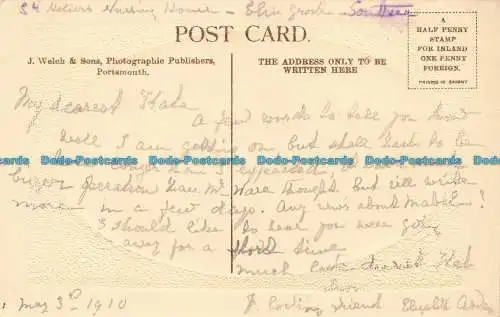 Nursing Home - Elm Grove - Southsea
POST CARD.
A
HALF PENNY
STAMP
FOR INLAND
ONE PENNY
FOREIGN.
PRINTED IN SAXONY
J. Welch & Sons, Photographic Publishers,
Portsmouth.
THE ADDRESS ONLY TO BE
WRITTEN HERE
My dearest
A few words to tell you how
well I am getting on but shall have to be
longer than I expected,
bigger operation than Mr Ward thought but will write
more in a few days. Any news about Mabel?
I should like to hear you were going
away for a short time
much love dearest
from
loving friend Elizabeth
May 3rd 1910
Dodo-Postcards Dodo-Postcards Dodo-Postcards Dodo-Postcards Dodo-Postcards Dodo-Postcards